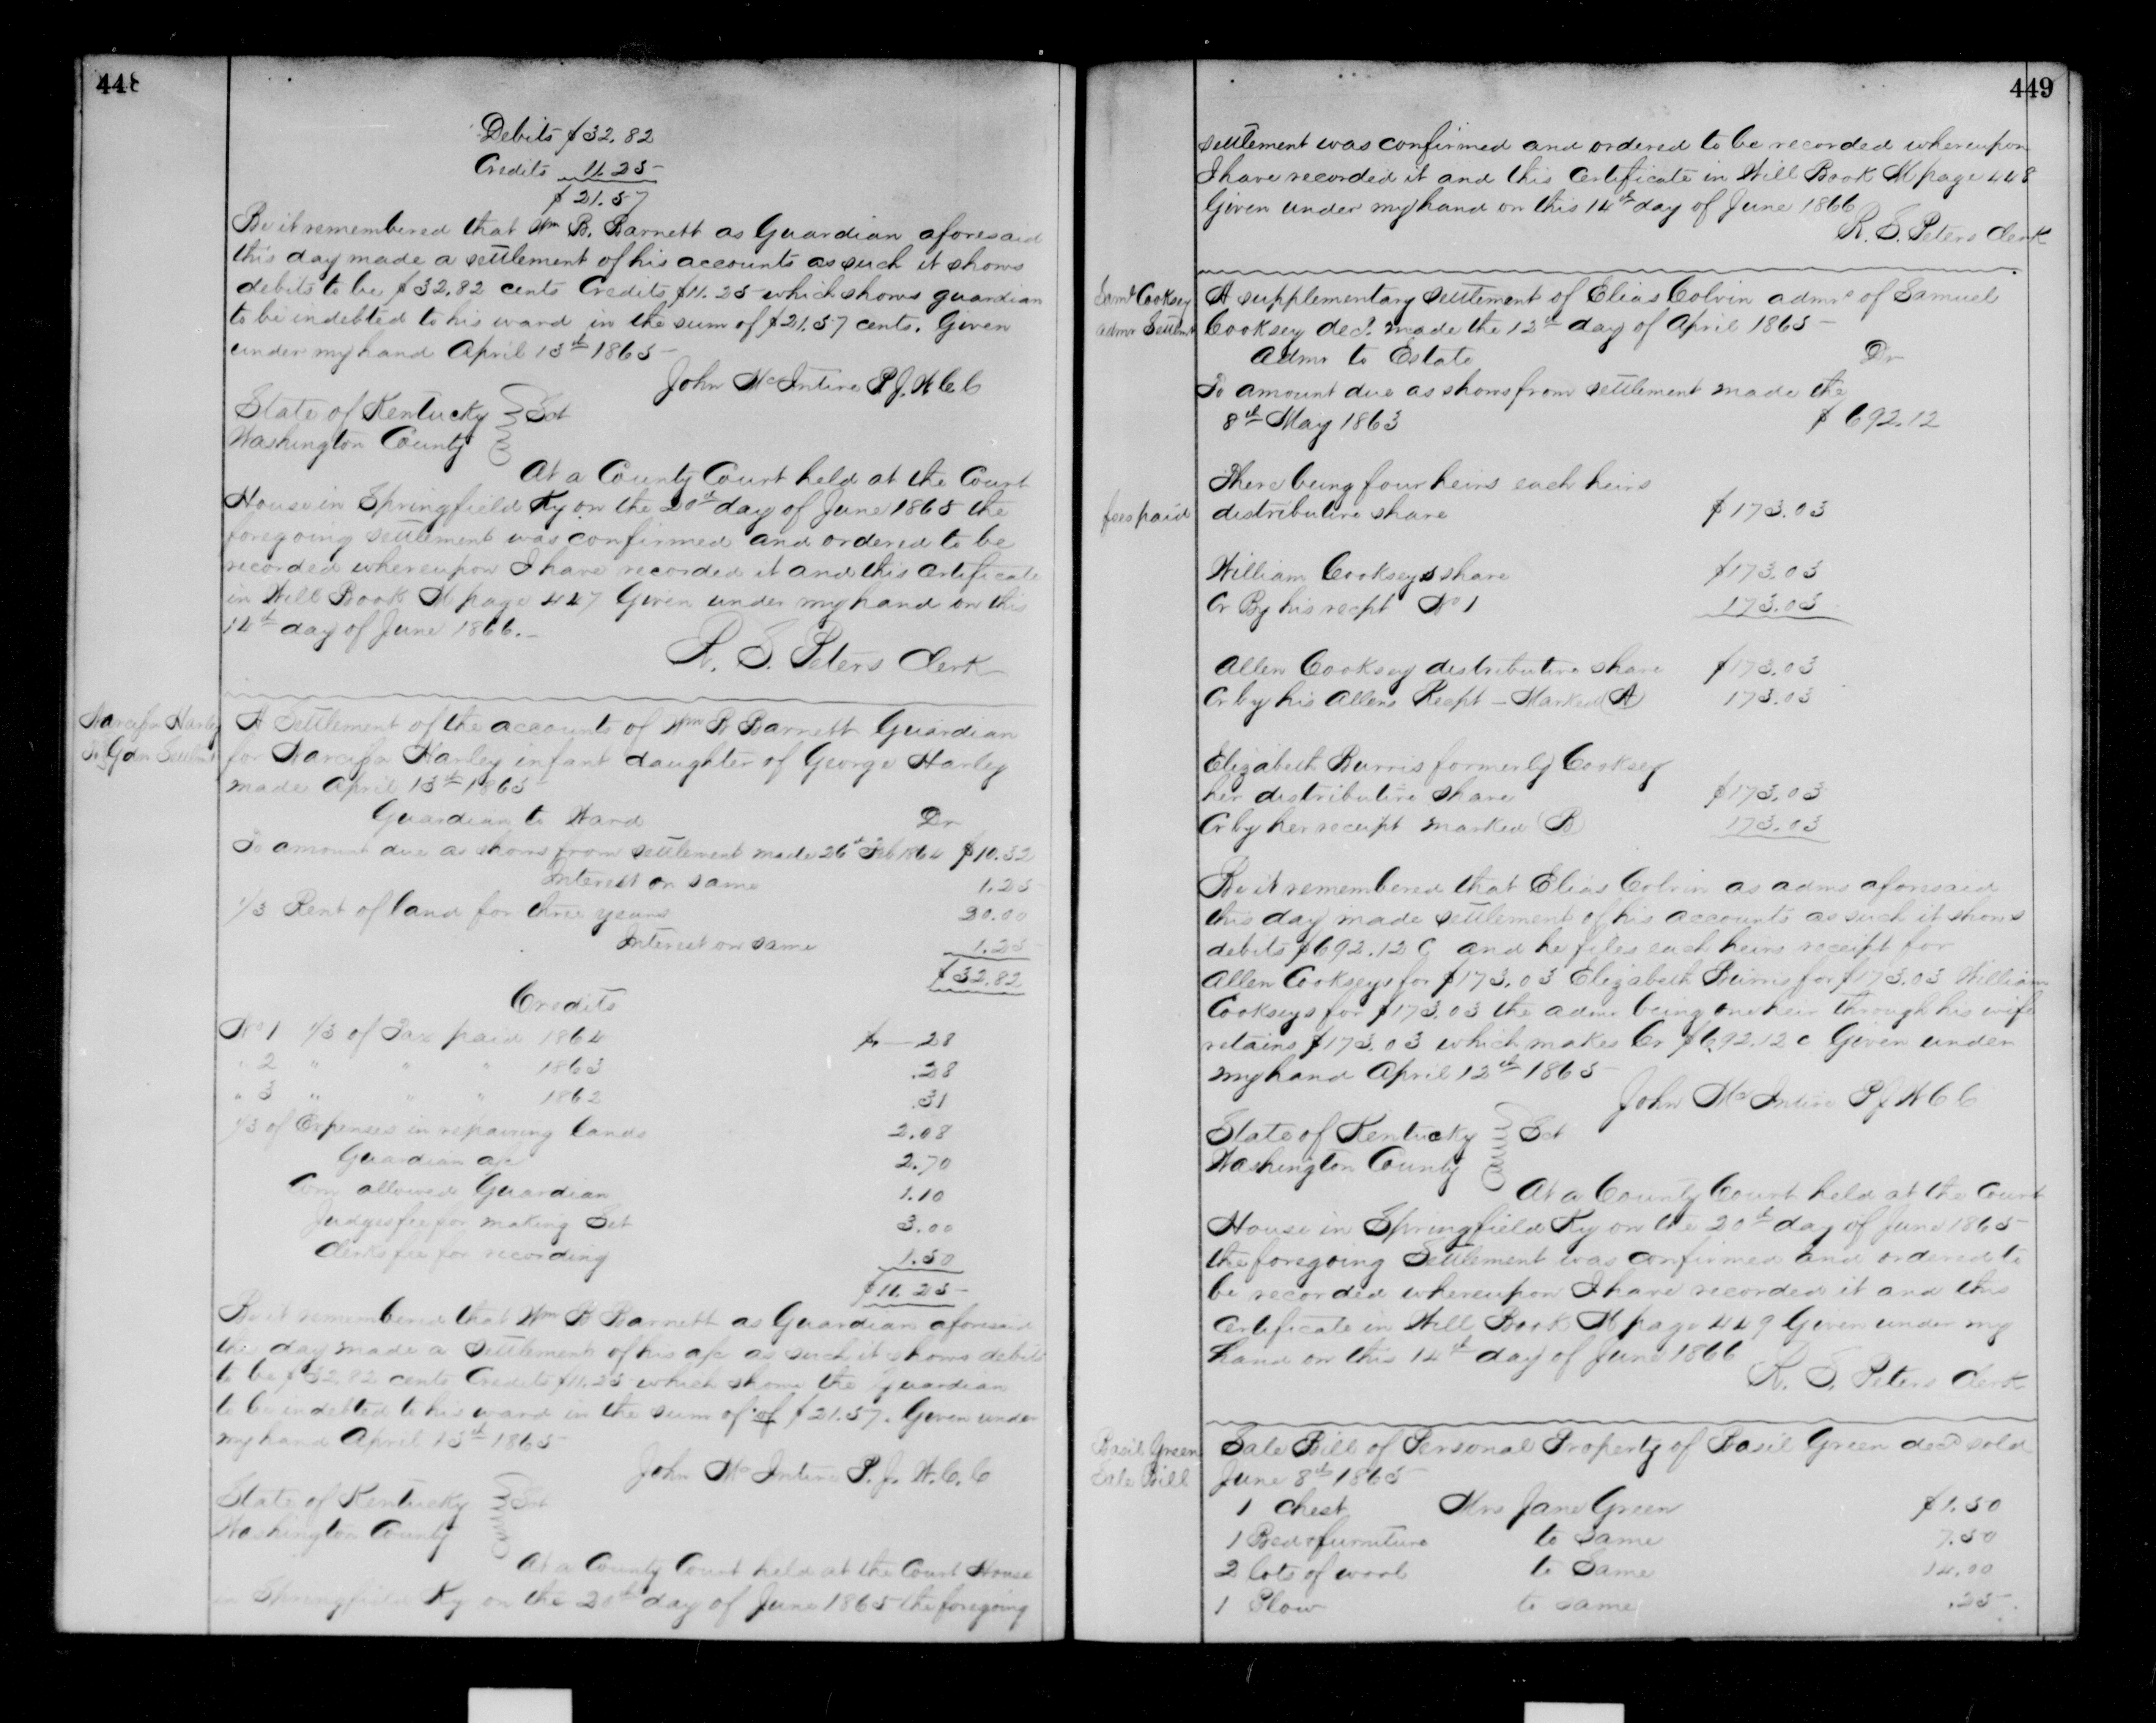 448
Debits $32.82
Credits 11.25
$21.57
Be it remembered that Wm B. Barnett as Guardian aforesaid
this day made a settlement of his accounts as such it shows
debits to be $32.82 cents Credits $11.25 which shows guardian
to be indebted to his ward in the sum of $21.57 cents. Given
under my hand April 13th 1865
John McIntire P.J.W.C.C
State of Kentucky Sct
Washington County
At a County Court held at the Court
House in Springfield Ky on the 20th day of June 1865 the
foregoing settlement was confirmed and ordered to be
recorded whereupon I have recorded it and this certificate
in Will Book M page 447 Given under my hand on this
14th day of June 1866.
R. S. Peters Clerk
Narcissa Harley
To Gdn Settlmt
A Settlement of the accounts of Wm B Barnett Guardian
for Narcissa Harley infant daughter of George Harley
made April 13th 1865
Guardian to Ward Dr
To amount due as shows from settlement made 26th Feb 1864 $10.32
Interest on same 1.25
1/3 Rent of land for three years 20.00
Interest on same 1.25
$32.82
Credits
No 1 1/3 of Tax paid 1864 $—28
" 2 " " " 1863 .28
" 3 " " " 1862 .31
1/3 of Expenses in repairing lands 2.08
Guardian a/c 2.70
Com allowed Guardian 1.10
Judges fee for making Set 3.00
Clerks fee for recording 1.50
$11.25
Be it remembered that Wm B Barnett as Guardian aforesaid
this day made a settlement of his a/c as such it shows debits
to be $32.82 cents Credits $11.25 which shows the Guardian
to be indebted to his ward in the sum of of $21.57. Given under
my hand April 13th 1865
John McIntire P.J.W.C.C
State of Kentucky Sct
Washington County
At a County Court held at the Court House
in Springfield Ky on the 20th day of June 1865 the foregoing
449
settlement was confirmed and ordered to be recorded whereupon
I have recorded it and this certificate in Will Book M page 448
Given under my hand on this 14th day of June 1866
R. S. Peters Clerk
Saml Cooksey
admr Settlmt
A supplementary settlement of Elias Colvin admr of Samuel
Cooksey decd. made the 12th day of April 1865
Admr to Estate Dr
To amount due as shows from settlement made the
8th May 1863 $692.12
There being four heirs each heirs
fees paid
distributive share $173.03
William Cookseys share $173.03
Cr By his recpt No 1 173.03
Allen Cooksey distributive share $173.03
Cr by his Allens Recpt - Marked A 173.03
Elizabeth Burris formerly Cooksey
her distributive share $173.03
Cr by her receipt marked B 173.03
Be it remembered that Elias Colvin as admr aforesaid
this day made settlement of his accounts as such it shows
debits $692.12 C and he files each heirs receipt for
Allen Cookseys for $173.03 Elizabeth Burris for $173.03 William
Cookseys for $173.03 the admr being one heir through his wife
retains $173.03 which makes Cr $692.12 c Given under
my hand April 12th 1865
John McIntire P J W C C
State of Kentucky Sct
Washington County
At a County Court held at the Court
House in Springfield Ky on the 20th day of June 1865
the foregoing Settlement was confirmed and ordered to
be recorded whereupon I have recorded it and this
certificate in Will Book M page 449 Given under my
hand on this 14th day of June 1866
R. S. Peters Clerk
Basil Green
Sale Bill
Sale Bill of Personal Property of Basil Green decd sold
June 8th 1865
1 Chest Mrs Jane Green $1.50
1 Bed & furniture to same 7.50
2 lots of wool to Same 14.00
1 Plow to same .25